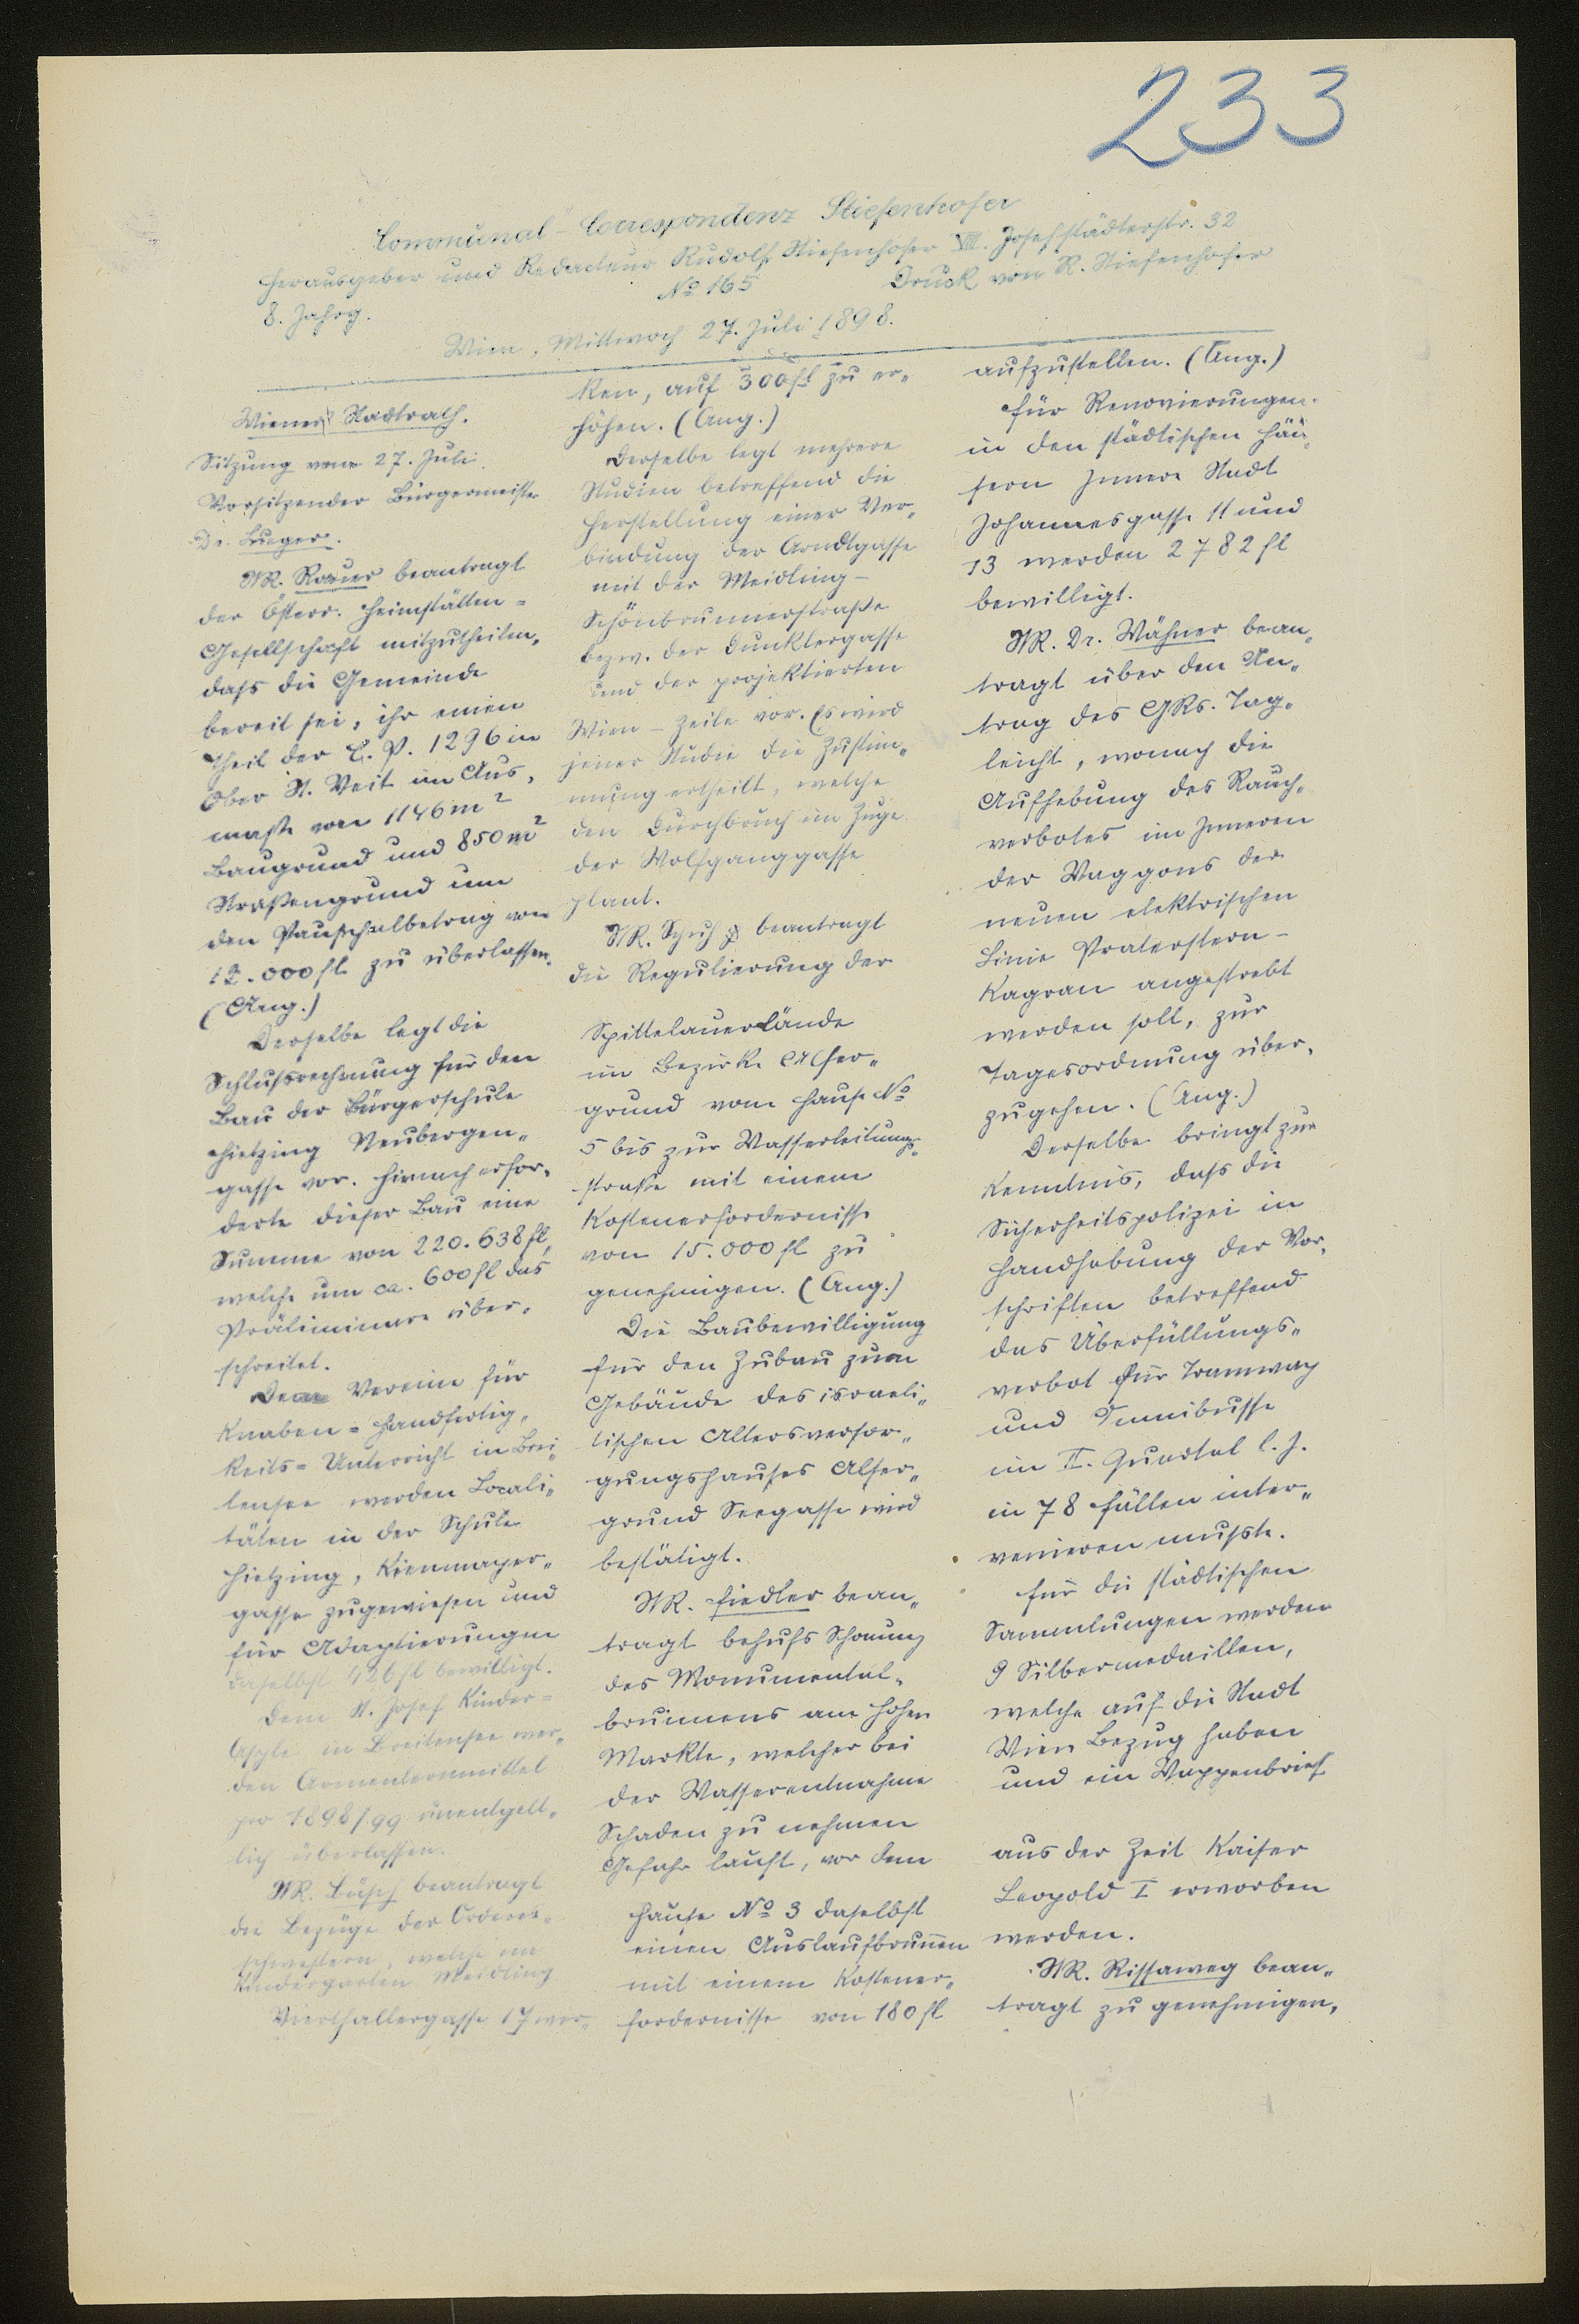 233
Communal-Correspondenz Stiefenhofer
Herausgeber und Redacteur Rudolf Stiefenhofer VIII. Josefstädterstr. 32
8. Jahrg. No 165 Druck von R. Stiefenhofer
Wien, Mittwoch 27. Juli 1898.
Wiener Stadtrath.
Sitzung vom 27. Juli
Vorsitzender Bürgermeister
Dr. Lueger.
StR. Rauer beantragt
der Österr. Heimstätten=
Gesellschaft mitzutheilen,
daß die Gemeinde
bereit sei, ihr einen
Theil der C. P. 1296 in
Ober St. Veit im Aus„
maße von 1146 m²
Baugrund und 850 m²
Straßengrund um
den Pauschalbetrag von
12.000 fl zu überlassen.
(Ang.)
Derselbe legt die
Schlußrechnung für den
Bau der Bürgerschule
Hietzing Neubergen„
gasse vor. Hienach erfor„
derte dieser Bau eine
Summe von 220.638 fl,
welche um ca. 600 fl das
Präliminare über„
schreitet.
Dem Vereine für
Knaben=Handfertig„
keits=Unterricht in Brei„
tensee werden Locali„
täten in der Schule
Hietzing, Kienmayer„
gasse zugewiesen und
für Adaptierungen
daselbst 426 fl bewilligt.
Dem St. Josef Kinder=
Asyle in Breitensee wer„
den Armenlernmittel
pro 1898/99 unentgelt„
lich überlassen.
StR. Büsch beantragt
die Bezüge der Ordens„
schwestern, welche im
Kindergarten Meidling
Vierthallergasse 17 wir„
ken, auf 300 fl zu er„
höhen. (Ang.)
Derselbe legt mehrere
Studien betreffend die
Herstellung einer Ver„
bindung der Arndtgasse
mit der Meidling-
Schönbrunnerstraße
bezw. der Dunklergasse
und der projektierten
Wien-Zeile vor. Es wird
jener Studie die Zustim„
mung ertheilt, welche
den Durchbruch im Zuge
der Wolfganggasse
plant.
StR. Schuh beantragt
die Regulierung der
Spittelauerlände
im Bezirke Alser„
grund vom Hause No
5 bis zur Wasserleitungs„
straße mit einem
Kostenerfordernisse
von 15.000 fl zu
genehmigen. (Ang.)
Die Baubewilligung
für den Zubau zum
Gebäude des israeli„
tischen Altersversor„
gungshauses Alser„
grund Seegasse wird
bestätigt.
StR. Fiedler bean„
tragt behufs Schonung
des Monumental„
brunnens am Hohen
Markte, welcher bei
der Wasserentnahme
Schaden zu nehmen
Gefahr lauft, vor dem
Hause No 3 daselbst
einen Auslaufbrunnen
mit einem Kostener„
fordernisse von 180 fl
aufzustellen. (Ang.)
Für Renovierungen
in den städtischen Häu„
sern Innere Stadt
Johannesgasse 11 und
13 werden 2782 fl
bewilligt.
StR. Dr. Wähner bean„
tragt über den An„
trag des GRs. Tag„
leicht, wonach die
Aufhebung des Rauch„
verbotes im Inneren
der Waggons der
neuen elektrischen
Linie Praterstern-
Kagran angestrebt
werden soll, zur
Tagesordnung über„
zugehen. (Ang.)
Derselbe bringt zur
Kenntnis, daß die
Sicherheitspolizei in
Handhabung der Vor„
schriften betreffend
das Überfüllungs„
verbot für Tramway
und Omnibusse
im II. Quartal l. J.
in 78 Fällen inter„
venieren mußte.
Für die städtischen
Sammlungen werden
9 Silbermedaillen,
welche auf die Stadt
Wien Bezug haben
und ein Wappenbrief
aus der Zeit Kaiser
Leopold I erworben
werden.
StR. Rissaweg bean„
tragt zu genehmigen,